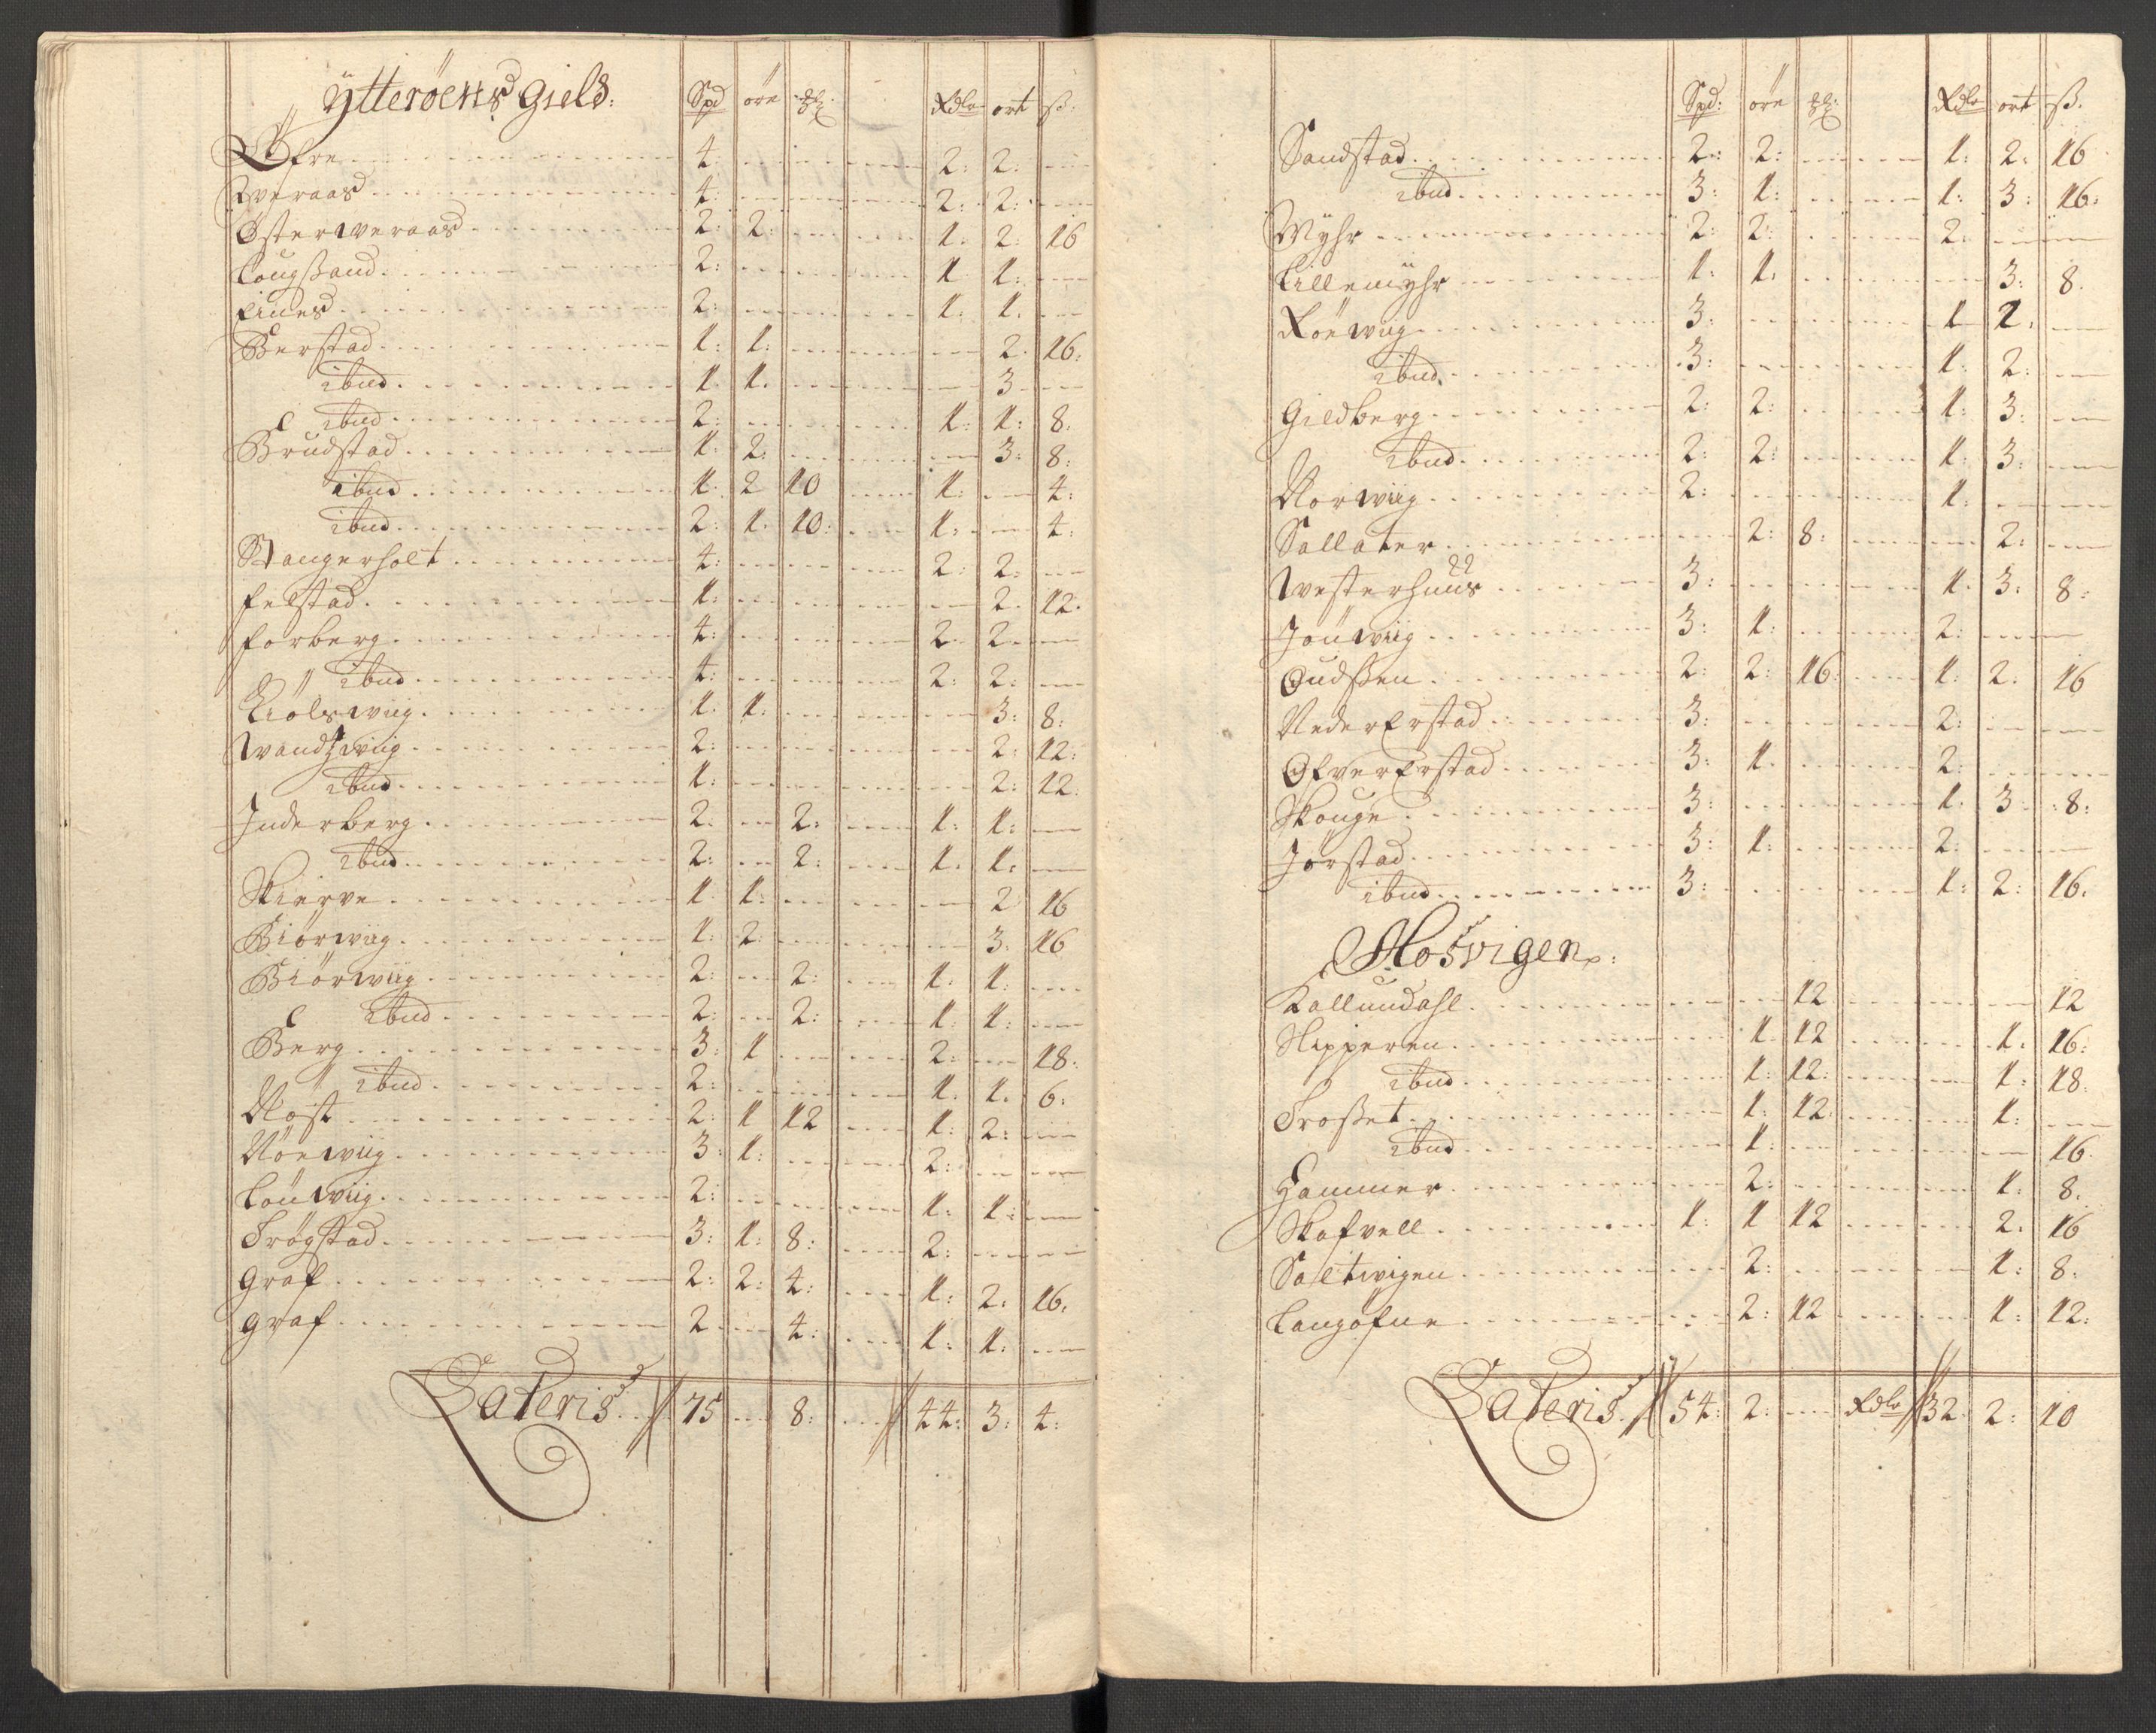 Ytterøens Gield:
Spd øre Rdlr ort ß:
Øfre 4 2: 2:
Tveraas 4: 2: 2:
Østerweraas 2: 2: 1: 2: 16
Lougßand 2: 1 1:
Fines 2: 1: 1.
Berstad 1: 1: 2. 16:
ibnd 1. 1. 3
ibnd 2: 1: 1: 8.
Brudstad 1: 2: 3: 8:
ibnd 1. 2 10 1: 4:
ibnd 2: 1. 10: 1: 4:
Stangerholt 4: 2: 2:
Felstad 1: 2. 12.
Forberg 4: 2 2
ibnd 4: 2: 2:
Kiølswiig 1. 1. 3: 8:
Wandswiig 2: 2: 12:
ibnd 1: 2: 12.
Inderberg 2. 2: 1: 1:
ibnd 2: 2: 1. 1.
Skierve 1. 1: 2 16
Biørwiig 1: 2: 3: 16
Biørwiig 2: 2: 1. 1:
ibnd 2: 2: 1: 1:
Berg 3: 1 2: 18.
ibnd 2: 1. 1. 6:
Nøist 2: 1 12 1: 2:
Nørwiig 3: 1: 2:
Løuwiig 2: 1: 1:
Frøgstad 3: 1: 8: 2:
Graf 2: 2: 4: 1: 2: 16.
Graf 2 4: 1: 1:
Lateris 75 8: 44: 3: 4:
Spd: øre Rdlr ort ß.
Sandstad 2: 2: 1: 2: 16
ibnd 3: 1: 1: 3: 16:
Myhr 2: 2: 2:
Lillemyhr 1: 1. 3: 8.
Røewiig 3: 1 2.
ibnd. 3: 1. 2:
Gieldberg 2: 2: 1: 3:
ibnd 2: 2: 1. 3:
Norwiig 2: 1.
Sallater 2: 8: 2:
Westerhuus 3: 1. 3: 8:
Jøuwiig 3: 1. 2:
Oudßen 2: 2: 16: 1: 2. 16
NederErstad 3: 2:
OfverErstad 3: 1. 2:
Skouge 3: 1. 3 8:
Jørstad 3: 1: 2:
ibnd 3: 1: 2: 16.
Mosvigen:
Kallundahl 12 12
Slipperen 1 12 1. 16:
ibnd 1: 12: 1: 18.
Troßet 1: 12. 1:
ibnd 1: 16.
Hammer 2: 1: 8.
Skafvell 1: 1 12 2. 16
Saltwigen 2: 1: 8:
Langøfne 2: 12 1: 12:
Lateris 54: 2: Rdlr 32 2: 10